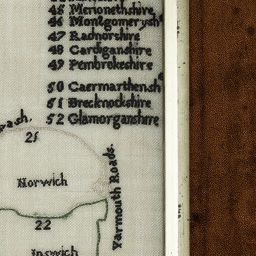 45 Merionethshire
46 Montgomerysh^e
47 Radnorshire
48 Cardiganshire
49 Pembrokeshire
50 Caermarthensh^e
51 Brecknockshire
52 Glamorganshire
21
Norwich
22
Ipswich
Yarmouth Roads.